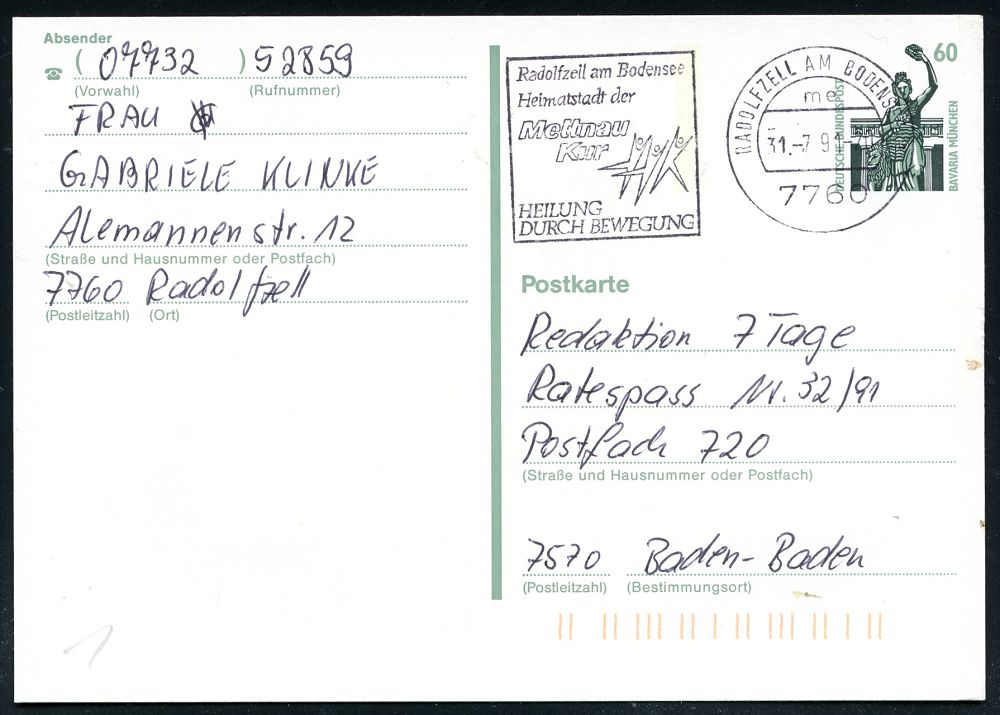 Absender
(07732) 52859
(Vorwahl) (Rufnummer)
FRAU
GABRIELE KLINKE
Alemannenstr. 12
(Straße und Hausnummer oder Postfach)
7760 Radolfzell
(Postleitzahl) (Ort)
Radolfzell am Bodensee
Heimatstadt der
Mettnau
Kur
HEILUNG
DURCH BEWEGUNG
RADOLFZELL AM BODENS
me
31.-7.91
7760
60
DEUTSCHE BUNDESPOST
BAVARIA MÜNCHEN
Postkarte
Redaktion 7 Tage
Ratespass Nr. 32/91
Postfach 720
(Straße und Hausnummer oder Postfach)
7570 Baden-Baden
(Postleitzahl) (Bestimmungsort)
1